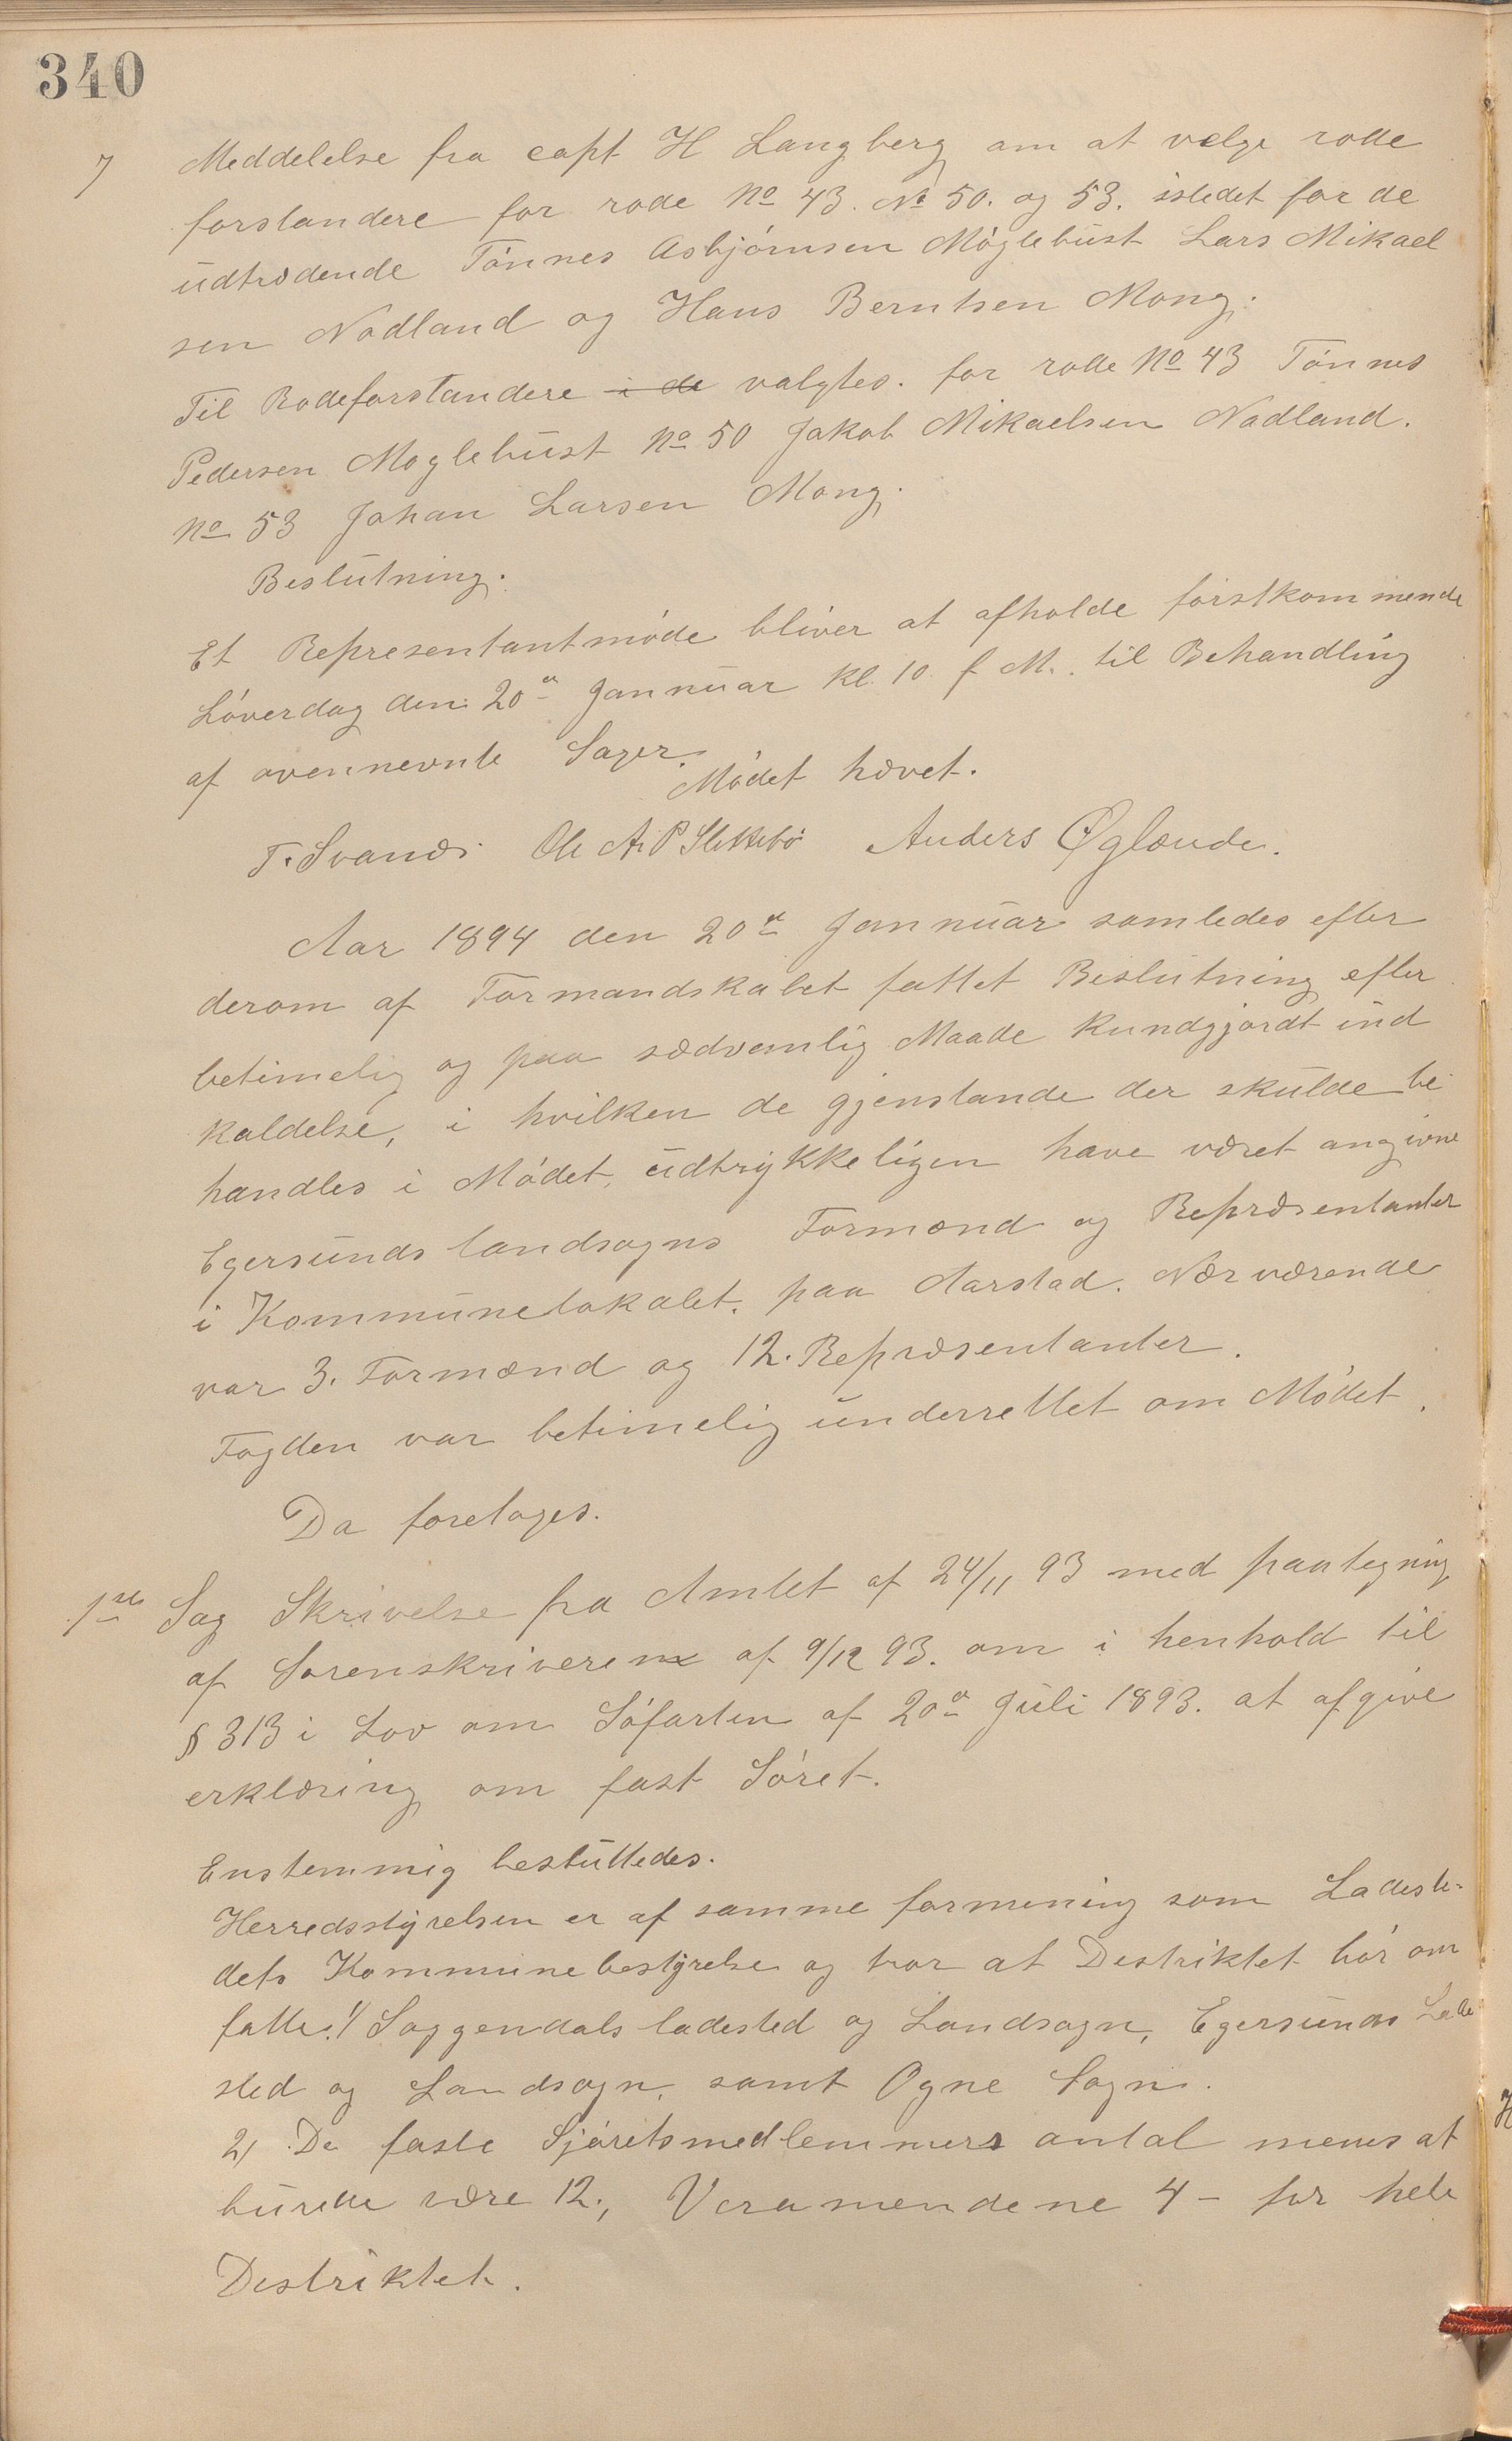 340
7 Meddelelse fra capt H Langberg om at vælge rode
forstandere for rode No 43. No 50. og 53. istedet for de
udtrædende Tönnes Asbjörnsen Möglebust Lars Mikael
sen Nodland og Hans Berntsen Mong.
Til Rodeforstandere i de valgtes. for rode No 43 Tönnes
Pedersen Moglebust No 50 Jakob Mikaelsen Nodland.
No 53 Johan Larsen Mong.
Beslutning.
Et Representantmöde bliver at afholde förstkommende
Löverdag den 20de Jannuar Kl. 10 f M. til Behandling
af ovennevnte Sager.
Mödet hævet.
T. Svanæs Ole A. P Slettebö Anders Øglænde.
Aar 1894 den 20de Jannuar samledes efter
derom af Formandskabet fattet Beslutning efter
betimelig og paa sædvanlig Maade Kundgjordt ind
kaldelse, i hvilken de gjenstande der skulde be
handles i Mödet, udtrykkeligen have været angivne
Egersunds landsogns Formænd og Repræsentanter
i Kommunelokalet. paa Aarstad. Nærværende
var 3. Formænd og 12. Repræsentanter.
Fogden var betimelig underrettet om Mödet.
Da foretoges.
1ste Sag Skrivelse fra Amtet af 24/11 93 med paategning
af Sorenskriveren af 9/12 93. om i henhold til
§ 313 i Lov om Söfarten af 20de Juli 1893. at afgive
erklæring om fast Söret.
Enstemmig besluttedes.
Herredsstyrelsen er af samme formening som Ladeste-
dets Kommunebestyrelse og tror at Destriktet bör om
fatte. 1/ Soggendals ladested og Landsogn, Egersunds Lade
sted og Landsogn, samt Ogne Sogn.
2/ De faste Sjöretsmedlemmers antal menes at
burde være 12., Varamendene 4 – for hele
Destriktet.